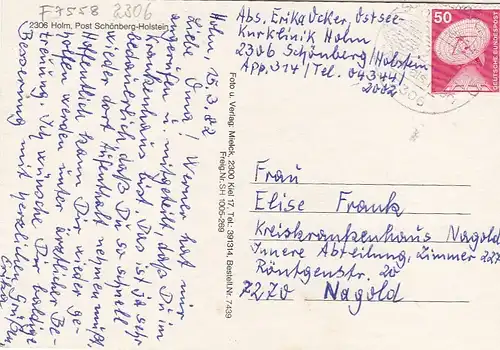 F7558 2306
2306 Holm, Post Schönberg-Holstein
Holm, 25.3.82
Liebe Oma! Werner hat mir
angerufen u. mitgeteilt, daß Du im
Krankenhaus bist. Das ist ja sehr
bedauerlich, daß Du so schnell
wieder dort Aufenthalt nehmen mußt.
Hoffentlich kann Dir wieder ge-
holfen werden unter ärztlicher Be-
treuung. Ich wünsche Dir baldige
Besserung mit herzlichen Grüßen,
Erika
Foto u. Verlag: Mielck, 2300 Kiel 17, Tel.: 391314, Bestell.Nr. 7439
Freig.Nr.:SH 1005-269
Abs. Erika Ücker, Ostsee-
Kurklinik Holm
2306 Schönberg/Holstein
App. 314/Tel. 04344/
2002
50
DEUTSCHE BUNDESPOST
2306
Frau
Elise Frank
Kreiskrankenhaus Nagold
Innere Abteilung, Zimmer 227
Röntgenstr. 20
7270 Nagold